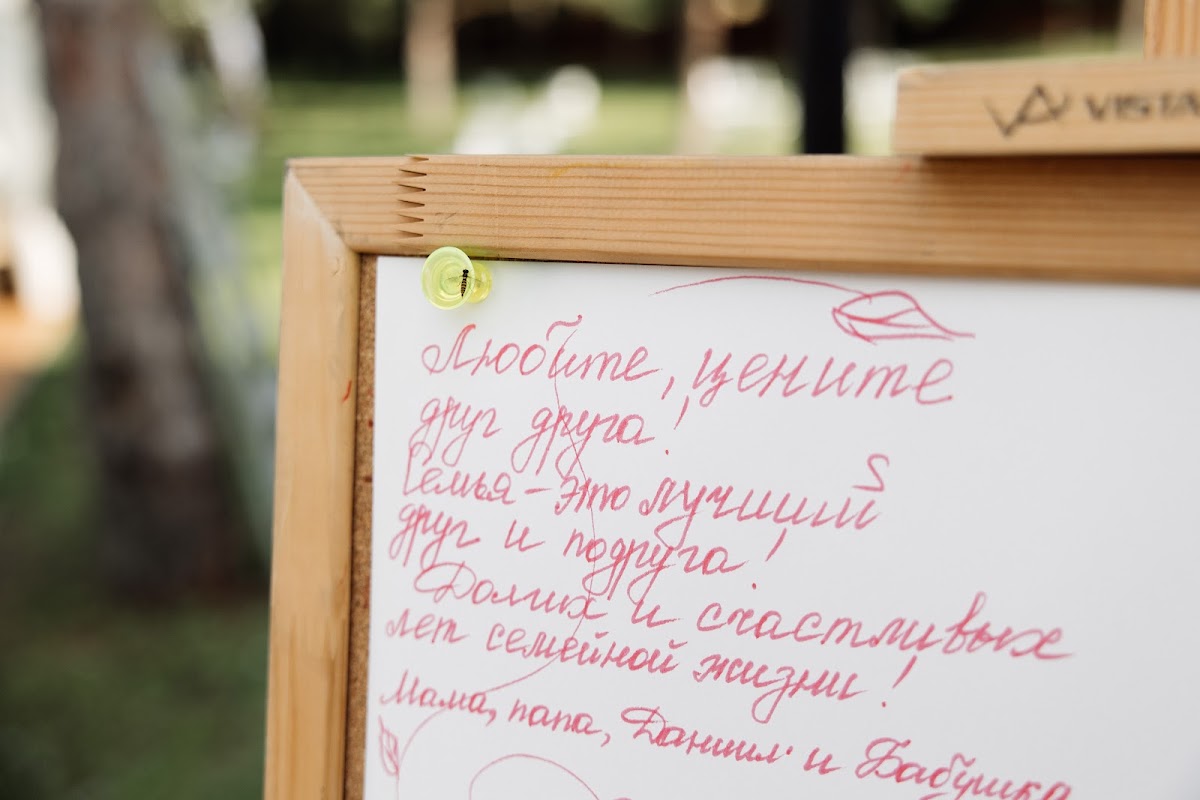 VISTA
Любите, цените
друг друга!
Семья - это лучший
друг и подруга!
Долгих и счастливых
лет семейной жизни!
Мама, папа, Даниил и Бабушка